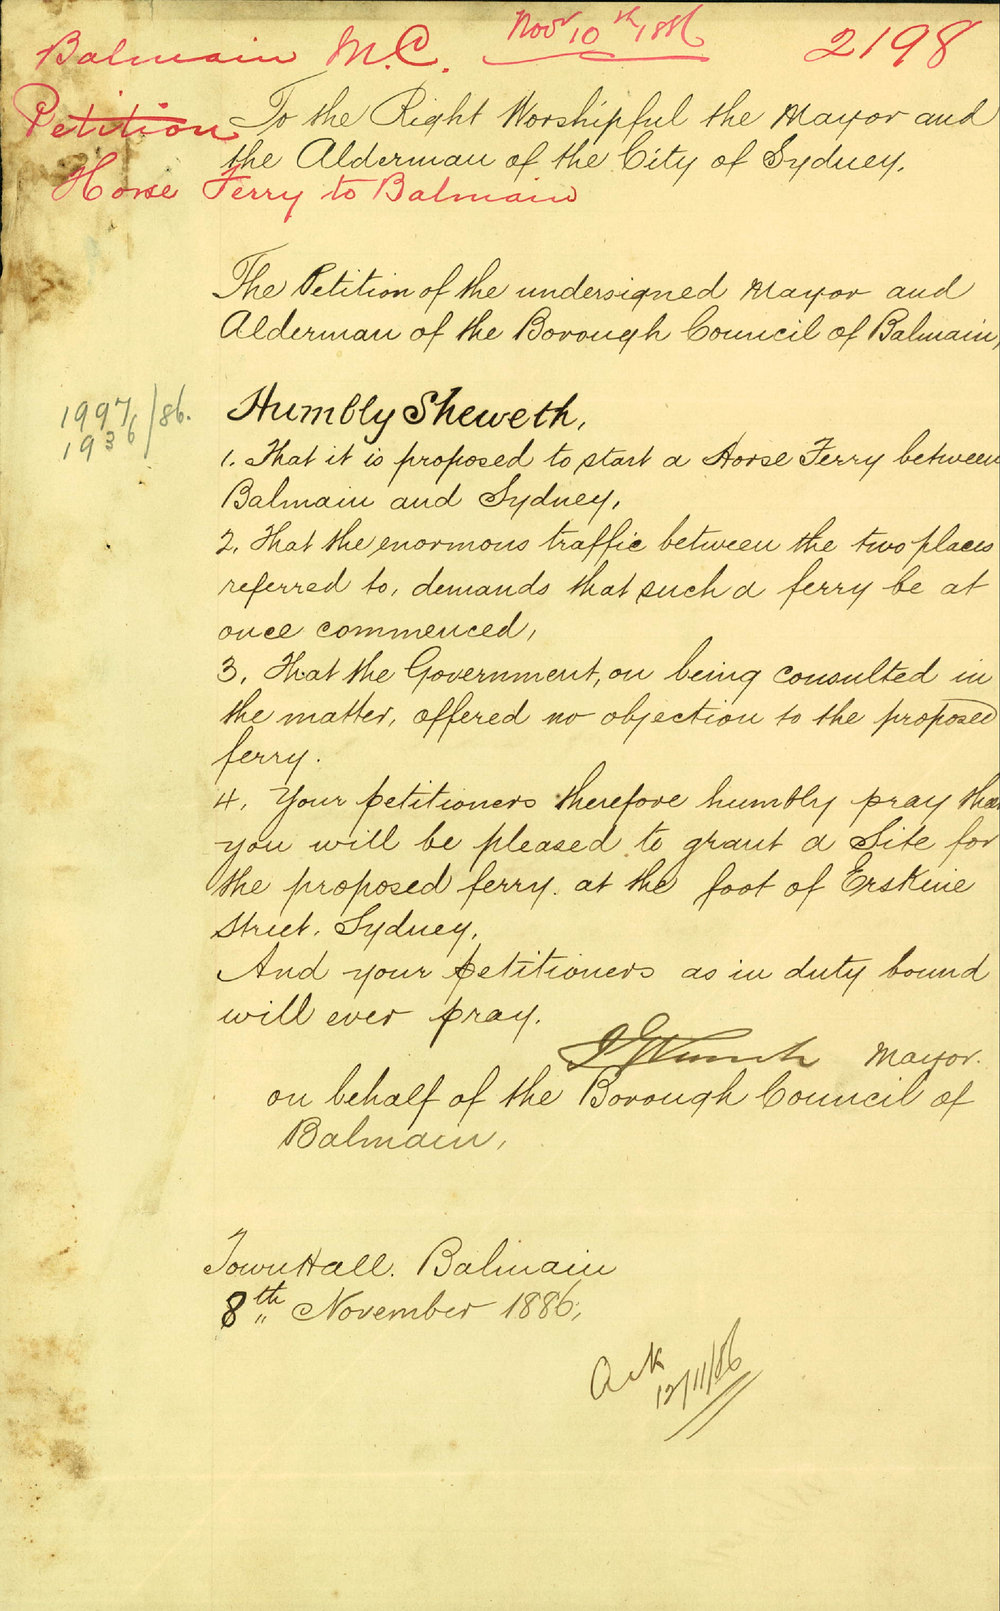 Balmain M.C. Novr 10th 1886 2198
Petition
To the Right Worshipful the Mayor and
the Alderman of the City of Sydney.
Horse Ferry to Balmain
The Petition of the undersigned Mayor and
Alderman of the Borough Council of Balmain,
Humbly Sheweth,
1997/86.
1936
1. That it is proposed to start a Horse Ferry between
Balmain and Sydney,
2. That the enormous traffic between the two places
referred to, demands that such a ferry be at
once commenced,
3. That the Government, on being consulted in
the matter, offered no objection to the proposed
ferry.
4. Your petitioners therefore humbly pray that
you will be pleased to grant a Site for
the proposed ferry. at the foot of Erskine
Street. Sydney.
And your petitioners as in duty bound
will ever pray.
Mayor.
on behalf of the Borough Council of
Balmain,
Town Hall. Balmain
8th November 1886.
Ack
12/11/86